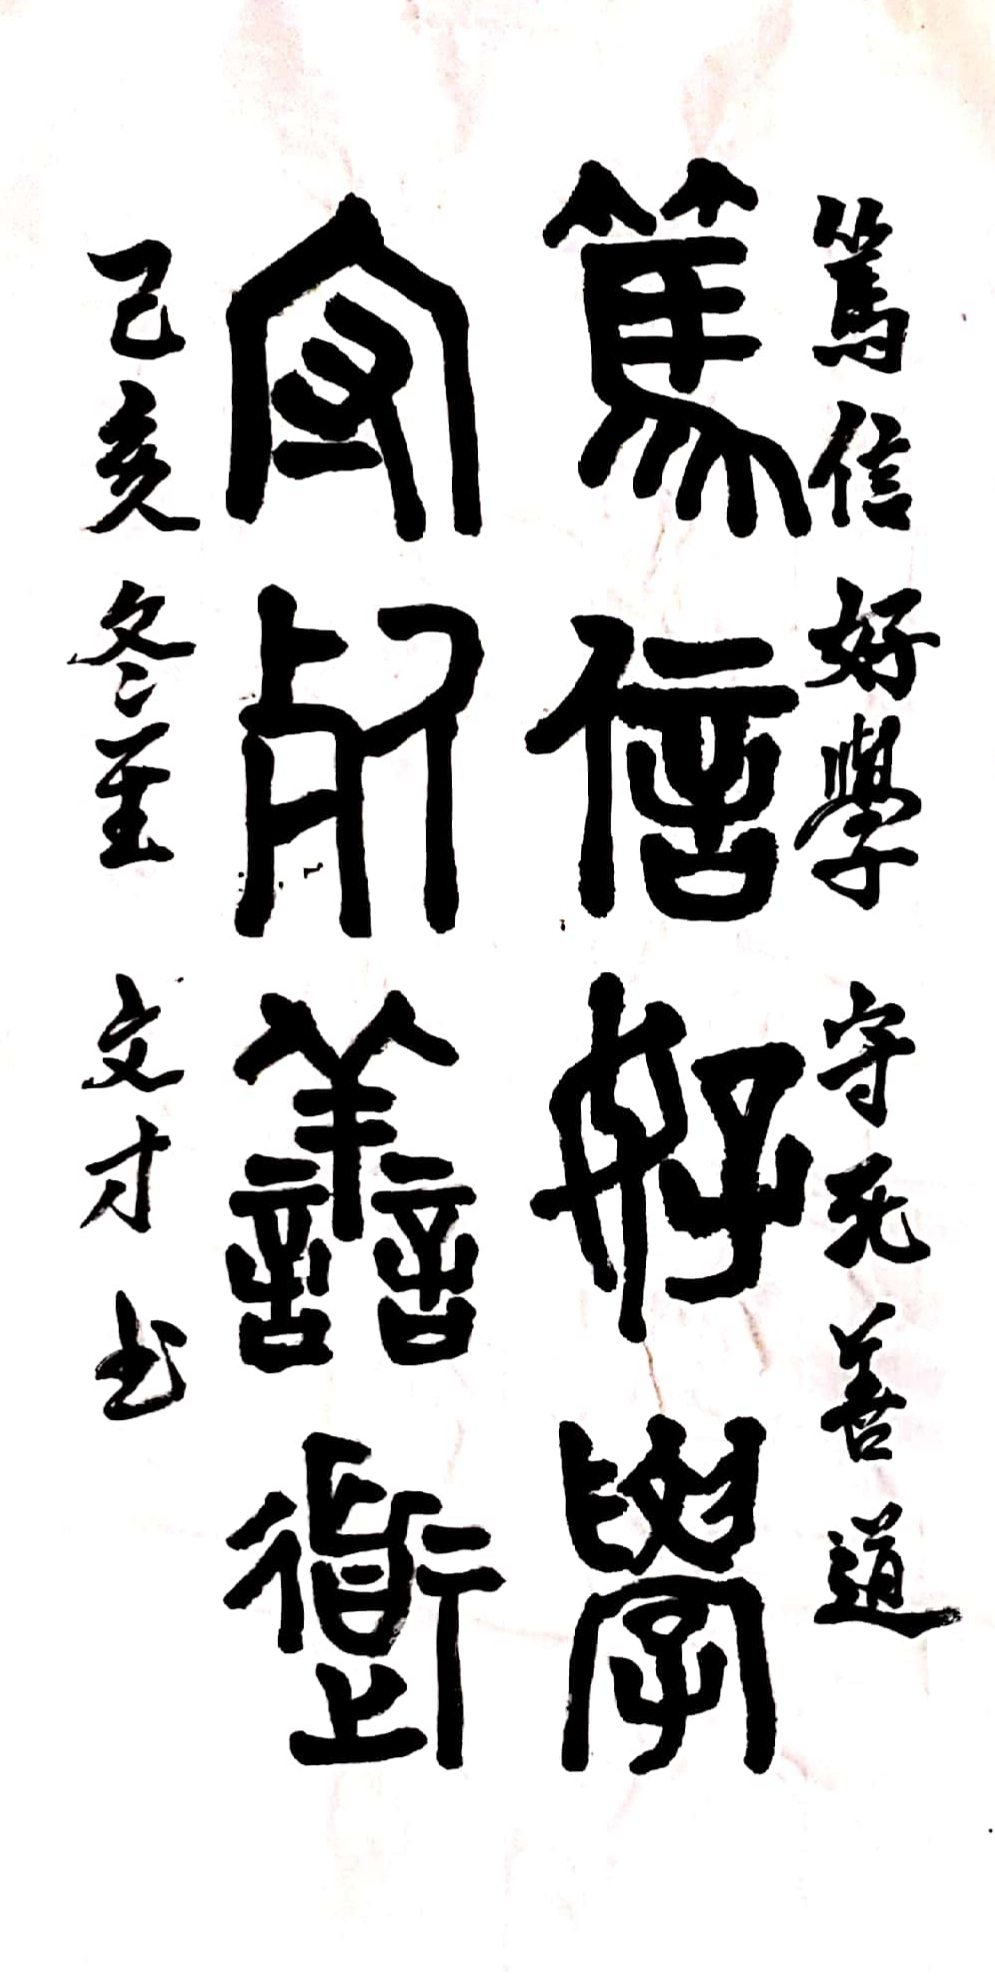 篤信好學守死善道
篤信好學
守死善道
己亥冬至文才书